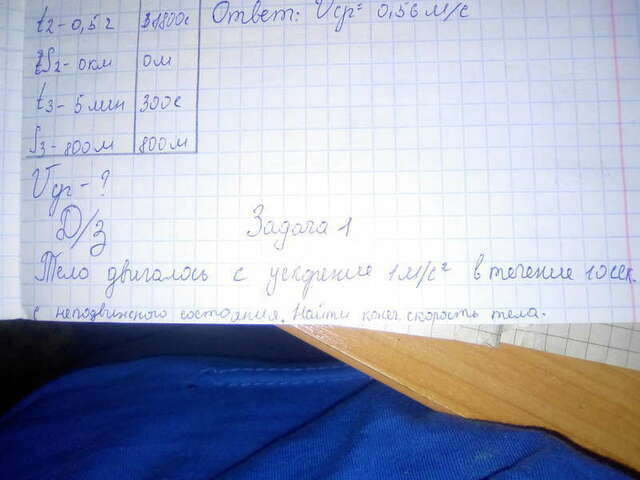 t2-0,5г 1800с Ответ: Vср= 0,56м/с
S2-0км 0м
t3-5мин 300с
S3-800м 800м
Vср-?
Д/З Задача 1
Тело двигалось с ускорение 1м/с² в течение 10сек.
с неподвижного состояния. Найти конеч. скорость тела.